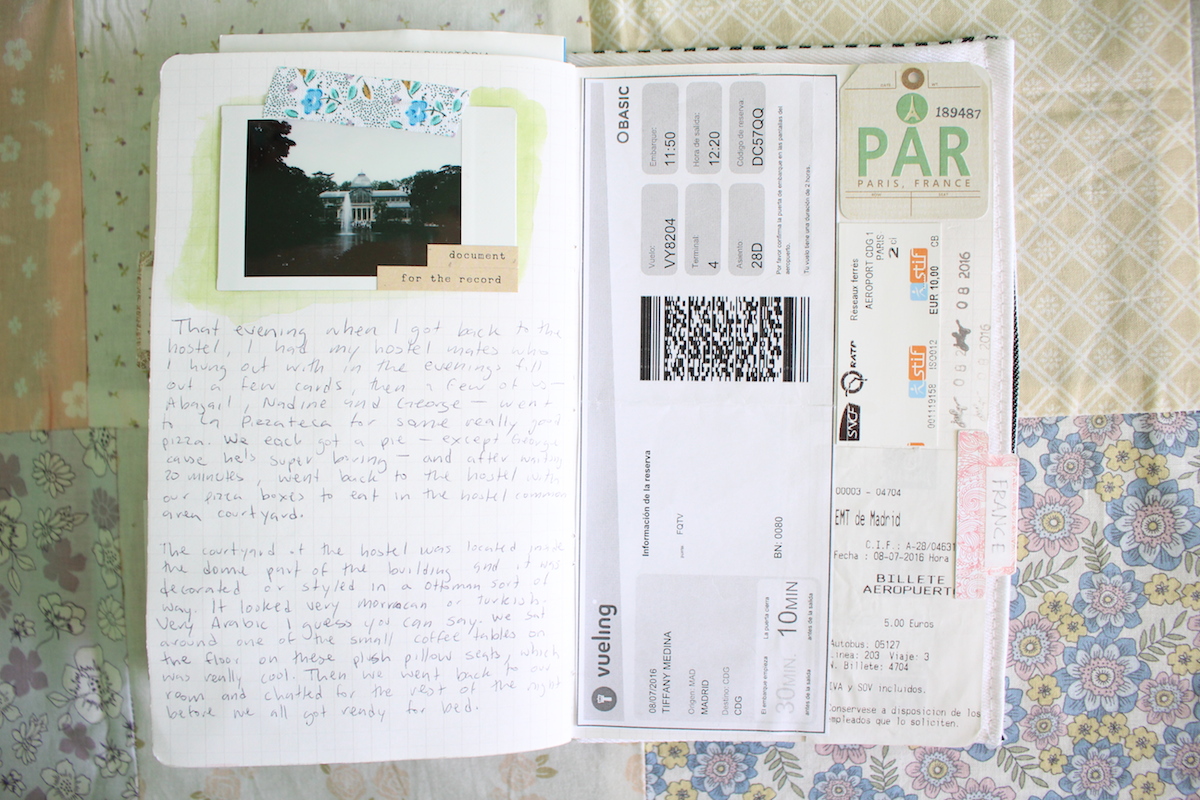 document
for the record
That evening when I got back to the
hostel, I had my hostel mates who
I hung out with in the evenings fill
out a few cards, then a few of us —
Abagail, Nadine and George — went
to La Piezateca for some really good
pizza. We each got a pie — except George
cause he's super boring — and after waiting
20 minutes, went back to the hostel with
our pizza boxes to eat in the hostel common
area courtyard.
The courtyard of the hostel was located inside
the dome part of the building and it was
decorated or styled in a Ottoman sort of
way. It looked very morrocan or turkish.
Very Arabic I guess you can say. We sat
around one of the small coffee tables on
the floor on these plush pillow seats, which
was really cool. Then we went back to our
room and chatted for the rest of the night
before we all got ready for bed.
vueling
BASIC
08/07/2016
TIFFANY MEDINA
Origen: MAD
MADRID
Destino: CDG
CDG
El embarque empieza
30MIN.
antes de la salida
La puerta cierra
10MIN
antes de la salida
Información de la reserva
FQTV
BN: 0080
Vuelo:
VY8204
Embarque:
11:50
Terminal:
4
Hora de salida:
12:20
Asiento:
28D
Código de reserva:
DC57QQ
Por favor confirma la puerta de embarque en las pantallas del
aeropuerto.
Tu vuelo tiene una duración de 2 horas.
189487
PAR
PARIS, FRANCE
SNCF
RATP
Réseaux ferrés
AEROPORT CDG 1
PARIS
2 cl
stif
stif
001119158
ISQ012
EUR 10,00
CB
08 2016
FRANCE
00003 - 04704
EMT de Madrid
C.I.F.: A-28/04631
Fecha : 08-07-2016 Hora
BILLETE
AEROPUERT
5.00 Euros
Autobus: 05127
Linea: 203 Viaje: 3
N. Billete: 4704
IVA y SOV incluidos.
Conservese a disposicion de los
empleados que lo soliciten.